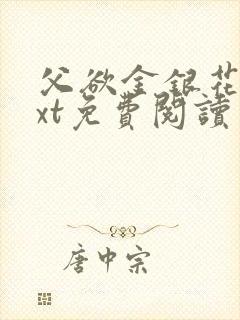 父欲金银花
xt免費閱讀
唐中宗